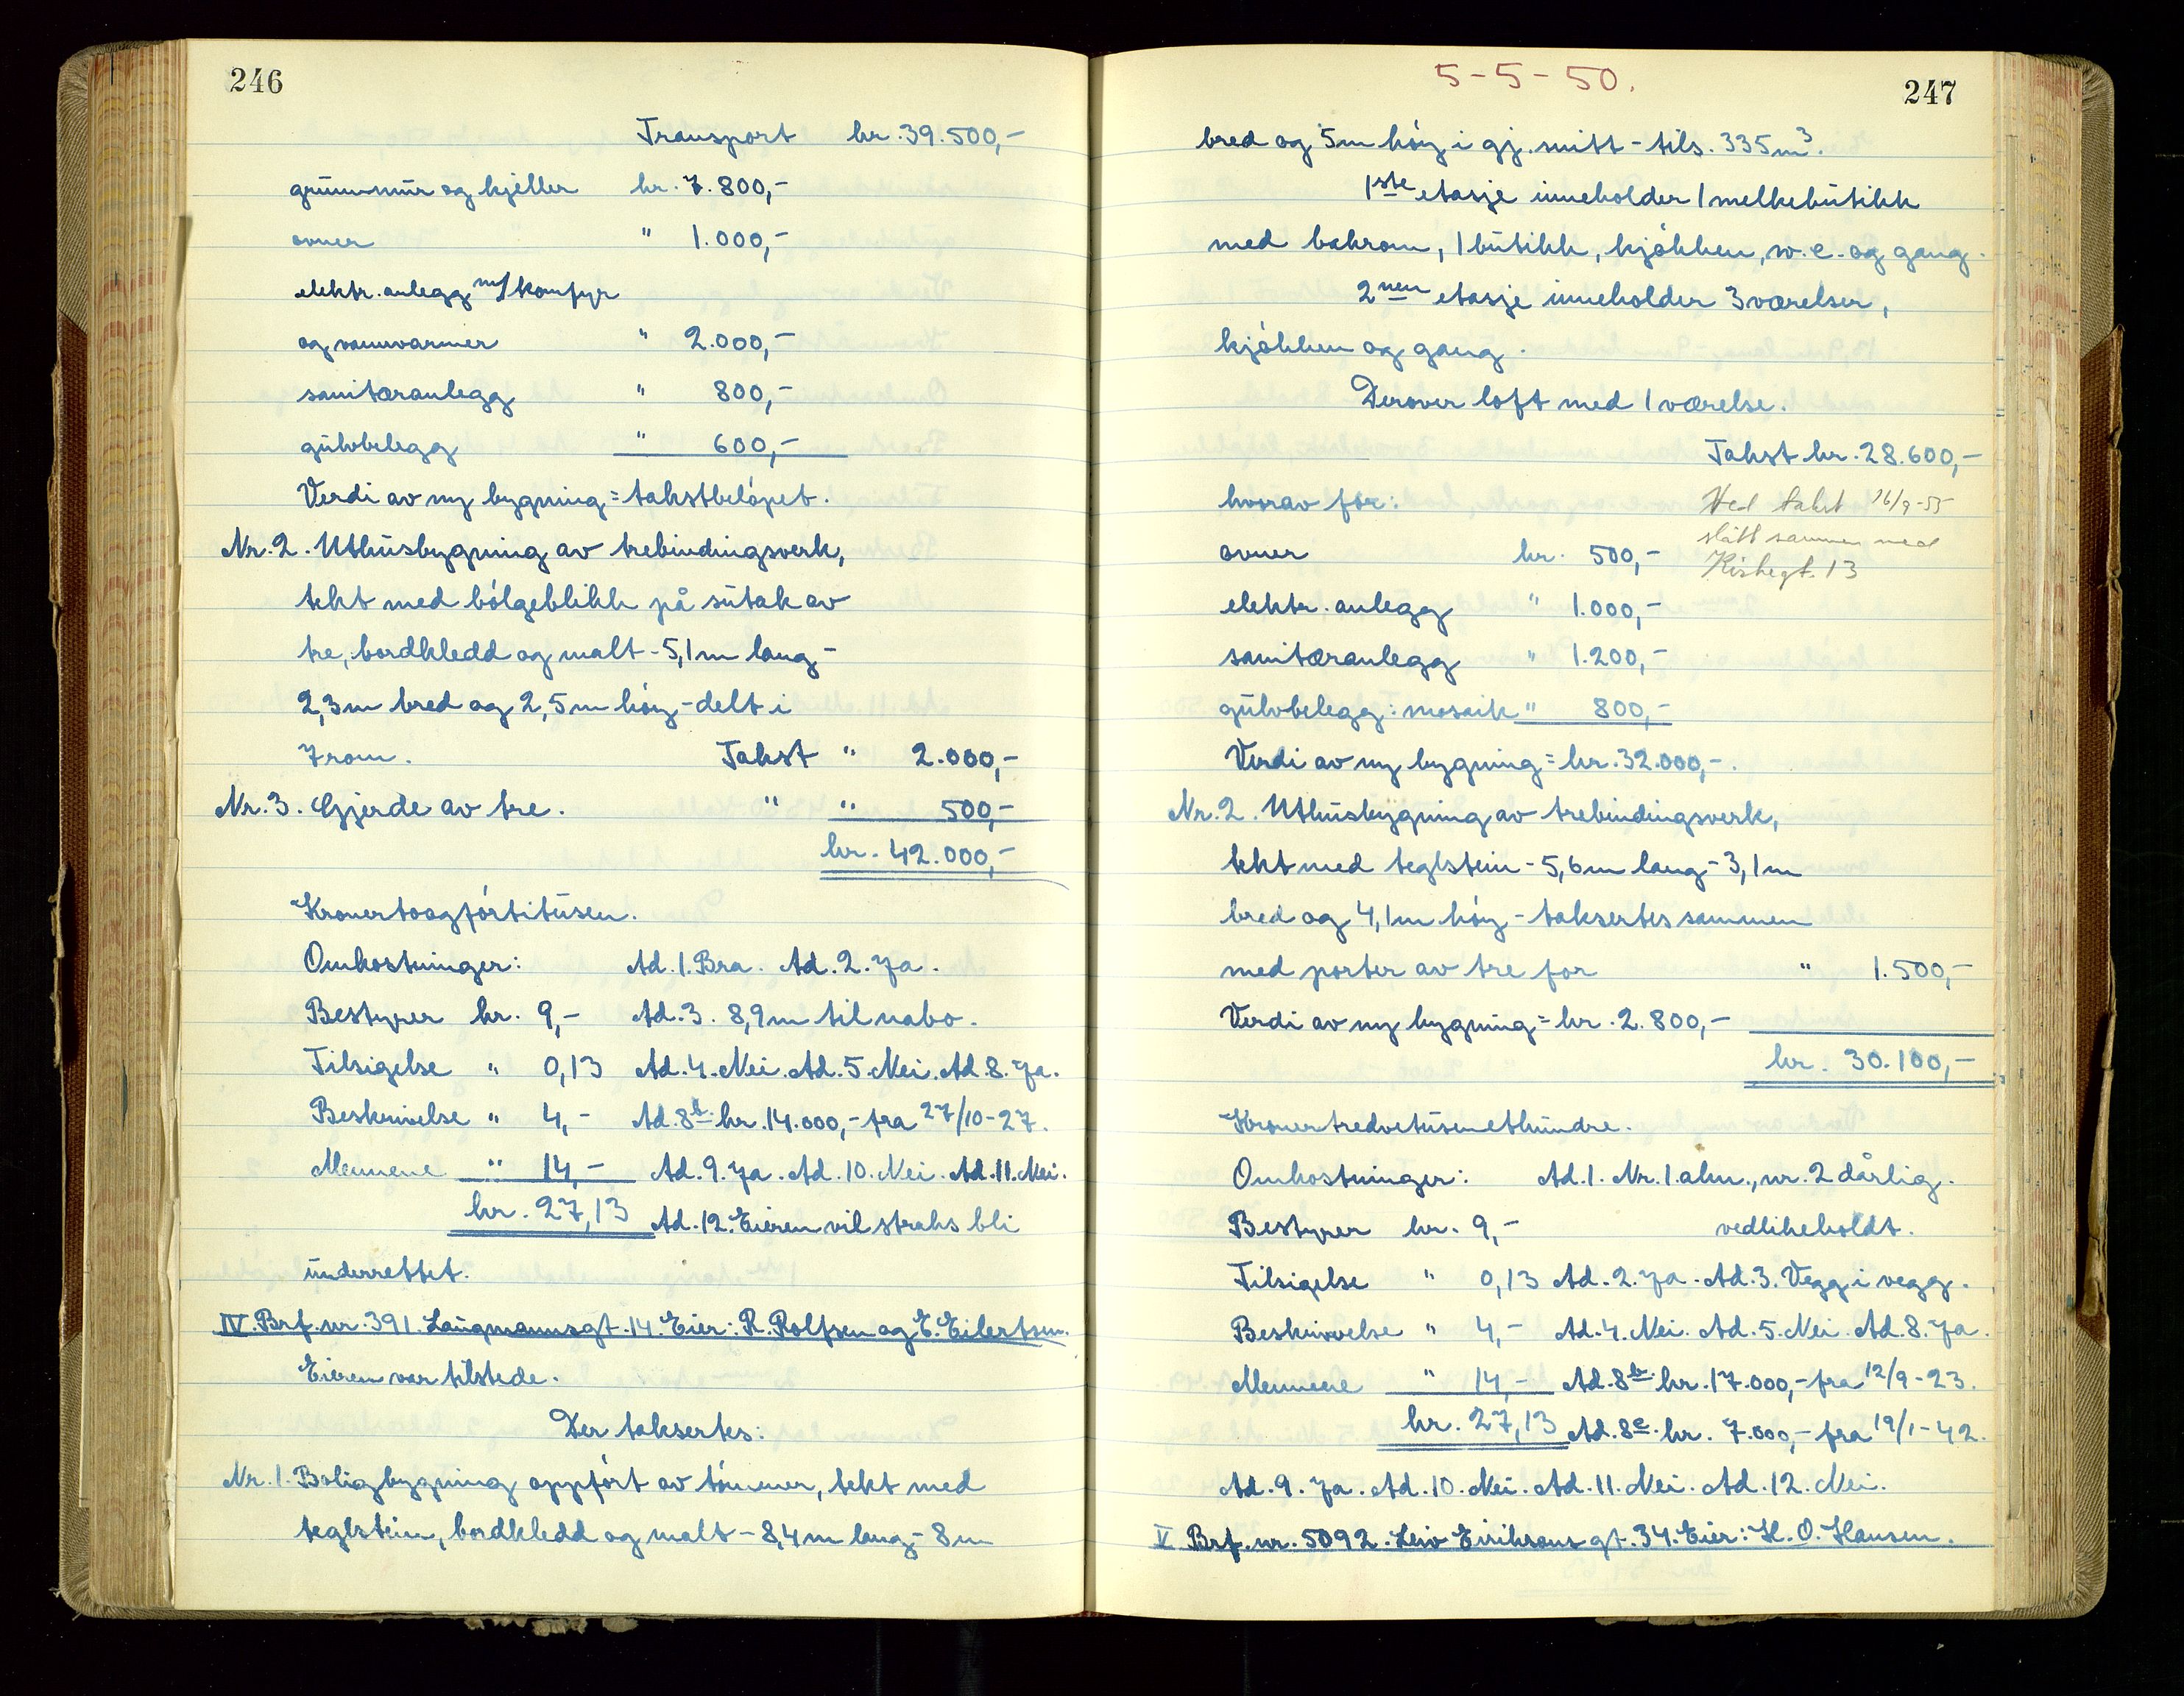 246
Transport kr. 39.500,-
grunnmur og kjeller kr. 7.800,-
ovner " 1.000,-
elektr. anlegg m/komfyr
og vannvarmer " 2.000,-
sanitæranlegg " 800,-
gulvbelegg " 600,-
Verdi av ny bygning = takstbeløpet.
Nr. 2. Uthusbygning av trebindingsverk,
tekt med bølgeblikk på sutak av
tre, bordkledd og malt - 5,1 m lang -
2,3 m bred og 2,5 m høy - delt i
7 rom. Takst " 2.000,-
Nr. 3. Gjerde av tre. " " 500,-
kr. 42.000,-
Kronertoogførtitusen.
Omkostninger: Ad. 1. Bra. Ad. 2. Ja.
Bestyrer kr. 9,- Ad. 3. 8,9 m til nabo.
Tilsigelse " 0,13 Ad. 4. Nei. Ad. 5. Nei. Ad. 8. Ja.
Beskrivelse " 4,- Ad. 8b. kr. 14.000,- fra 27/10-27.
Mennene " 14,- Ad. 9. Ja. Ad. 10. Nei. Ad. 11. Nei.
kr. 27,13 Ad. 12. Eieren vil straks bli
underrettet.
IV. Brf. nr. 391. Langmannsgt. 14. Eier: R. Rolfsen og E. Eilertsen.
Eieren var tilstede.
Der taksertes:
Nr. 1. Boligbygning oppført av tømmer, tekt med
teglstein, bordkledd og malt - 8,4 m lang - 8 m
5-5-50.
247
bred og 5 m høy i gj. snitt - tils. 335 m³.
1ste etasje inneholder 1 melkebutikk
med bakrom, 1 butikk, kjøkken, w.c. og gang.
2nen etasje inneholder 3 værelser,
kjøkken og gang.
Derover loft med 1 værelse.
Takst kr. 28.600,-
hvorav for: Ved takst 16/9-55
slått sammen med
ovner kr. 500,- Kirkegt. 13
elektr. anlegg " 1.000,-
sanitæranlegg " 1.200,-
gulvbelegg: mosaik " 800,-
Verdi av ny bygning = kr. 32.000,-.
Nr. 2. Uthusbygning av trebindingsverk,
tekt med teglstein - 5,6 m lang - 3,1 m
bred og 4,1 m høy - taksertes sammen
med porter av tre for " 1.500,-
Verdi av ny bygning = kr. 2.800,-
kr. 30.100,-
Kronertredvetusenethundre.
Omkostninger: Ad. 1. Nr. 1 alm., nr. 2 dårlig
Bestyrer kr. 9,- vedlikeholdt.
Tilsigelse " 0,13 Ad. 2. Ja. Ad. 3. Vegg i vegg.
Beskrivelse " 4,- Ad. 4. Nei. Ad. 5. Nei. Ad. 8. Ja.
Mennene " 14,- Ad. 8b. kr. 17.000,- fra 12/9-23.
kr. 27,13 Ad. 8c. kr. 7.000,- fra 19/1-42.
Ad. 9. Ja. Ad. 10. Nei. Ad. 11. Nei. Ad. 12. Nei.
V Brf. nr. 5092. Leiv Eirikssons gt. 34. Eier: H. O. Hansen.